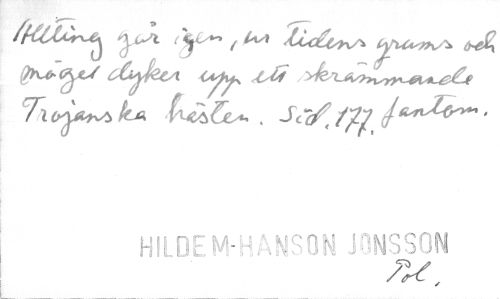 Allting går igen, ur tidens grums och
mögel dyker upp ett skrämmande
Trojanska hästen. Sid. 177. fantom.
HILDEM-HANSON JONSSON
Pol.